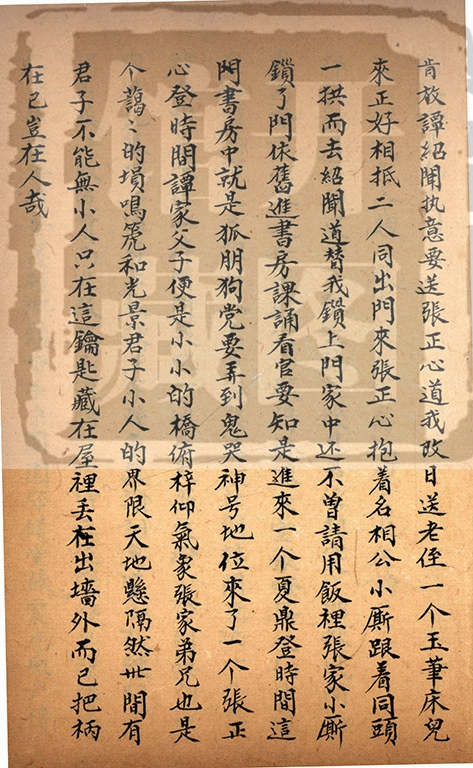 肯放譚紹聞执意要送張正心道我改日送老侄一个玉筆床兒
來正好相抵二人同出門來張正心抱着名相公小厮跟着同頭
一拱而去紹聞道替我鎖上門家中还不曾請用飯裡張家小厮
鎖了門依舊進書房課誦看官要知是進來一个夏鼎登時間這
門書房中就是狐朋狗党要弄到鬼哭神号地位來了一个張正
心登時間譚家父子便是小小的橋俯梓仰氣象張家弟兄也是
个藹〻的塤鳴箎和光景君子小人的界限天地懸隔然世間有
君子不能無小人只在這鑰匙藏在屋裡丢在出墻外而已把柄
在已豈在人哉